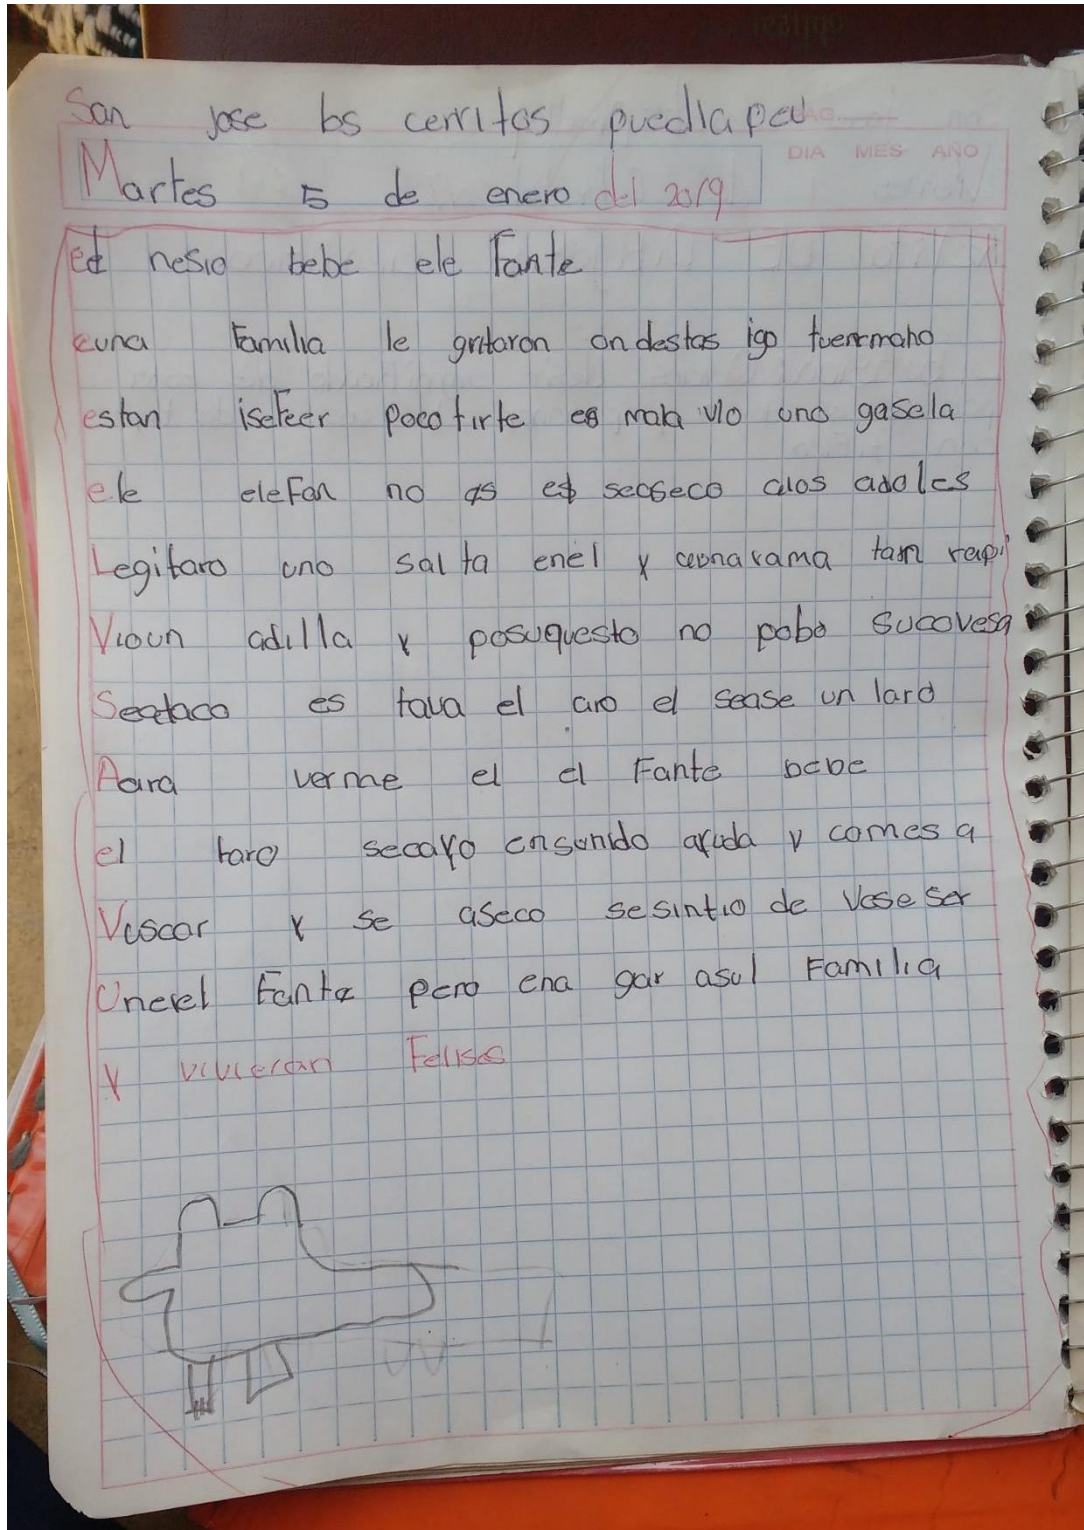 San jose los cerritos puedla peu
Martes 5 de enero del 2019
DIA MES AÑO
el nesio bebe ele Fante
euna Familia le gritaron ondestas igo tuermano
estan iseFeer poco firte es mala vio una gasela
ele eleFan no as es secseco alos adoles
Legitaro uno salta enel y ceonarama tam rapi
Vioun adilla y posuquesto no pobo sucovesa
Seataco es tava el aro el sease un lard
Aara verme el el Fante bebe
el taro secayo ensonido ayuda y comes a
Vuscar y se aseco sesintio de Vose ser
Unerel Fante pero ena gar asul Familia
y vivieran Felises